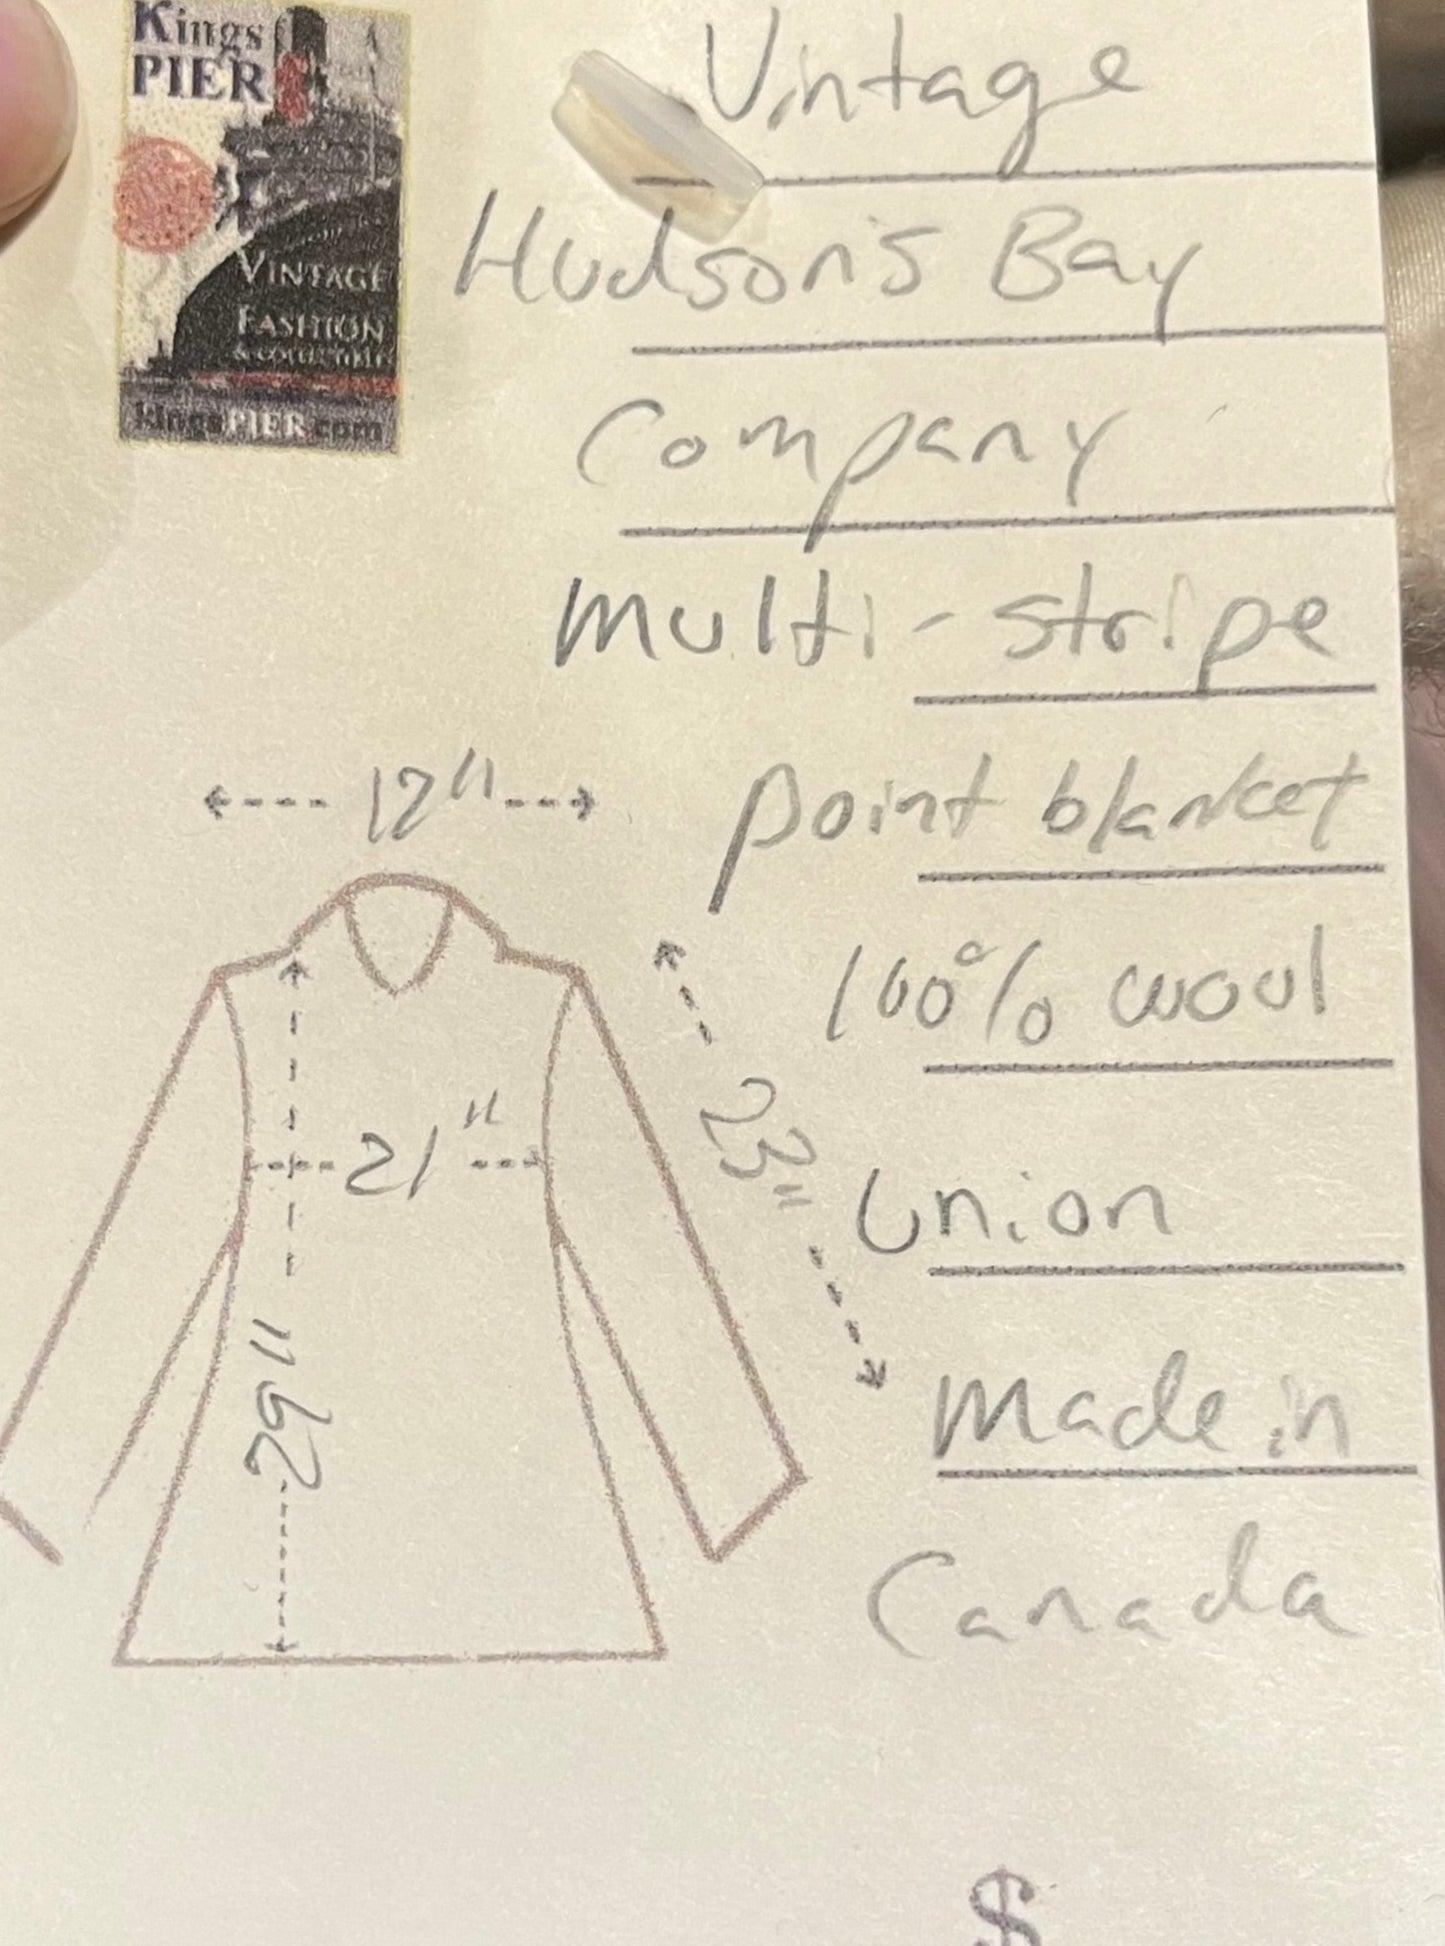 Kings
PIER
VINTAGE
FASHION
& COLLECTIBLE
kingsPIER.com
Vintage
Hudson's Bay
Company
multi-stripe
point blanket
100% wool
Union
made in
Canada
17"
21"
23"
29"
$